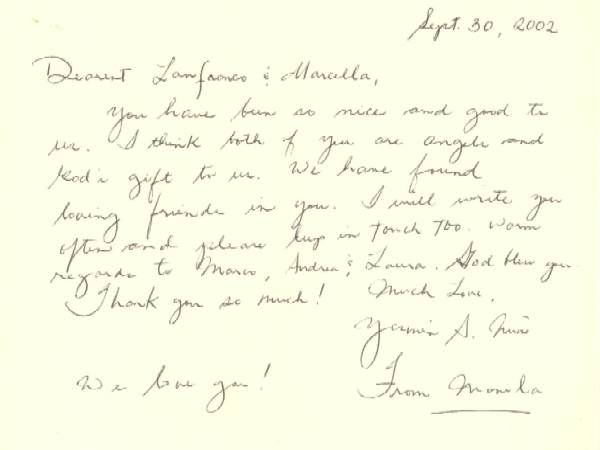 Sept. 30, 2002
Dearest Lanfranco & Marcella,
You have been so nice and good to
us. I think both of you are angels and
God's gift to us. We have found
loving friends in you. I will write you
often and please keep in touch too. Warm
regards to Marco, Andrea & Laura. God bless you.
Thank you so much! Much Love,
Yasmin S.
We love you! From Manila